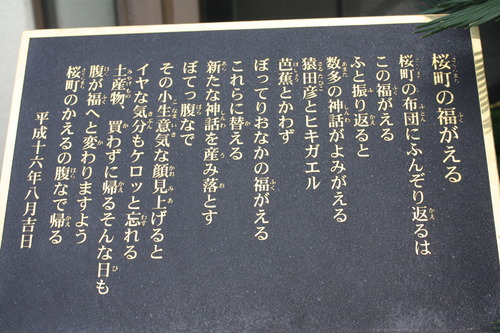 桜町の福がえる
桜町の布団にふんぞり返るは
この福がえる
ふと振り返ると
数多の神話がよみがえる
猿田彦とヒキガエル
芭蕉とかわず
ぼってりおなかの福がえる
これらに替える
新たな神話を産み落とす
ぼてっ腹なで
その小生意気な顔見上げると
イヤな気分もケロッと忘れる
土産物、買わずに帰るそんな日も
腹が福へと変わりますよう
桜町のかえるの腹なで帰る
平成十六年八月吉日